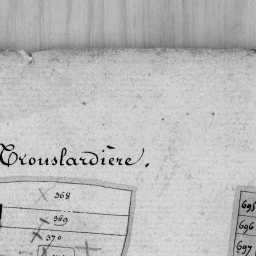 Trouslardière.
368
369
370
695
696
697